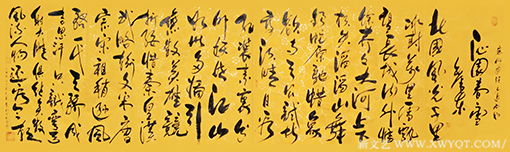 沁园春雪
毛泽东
北国风光千里
冰封万里雪飘
望长城内外惟
余莽莽大河上下
顿失滔滔山舞
银蛇原驰蜡象
欲与天公试比
高须晴日看
红装素裹分
外妖娆江山
如此多娇引
无数英雄竞
折腰惜秦皇汉
武略输文采唐
宗宋祖稍逊风
骚一代天骄成
吉思汗只识弯弓
射大雕俱往矣数
风流人物还看今朝
新文艺 WWW.XWYQT.COM